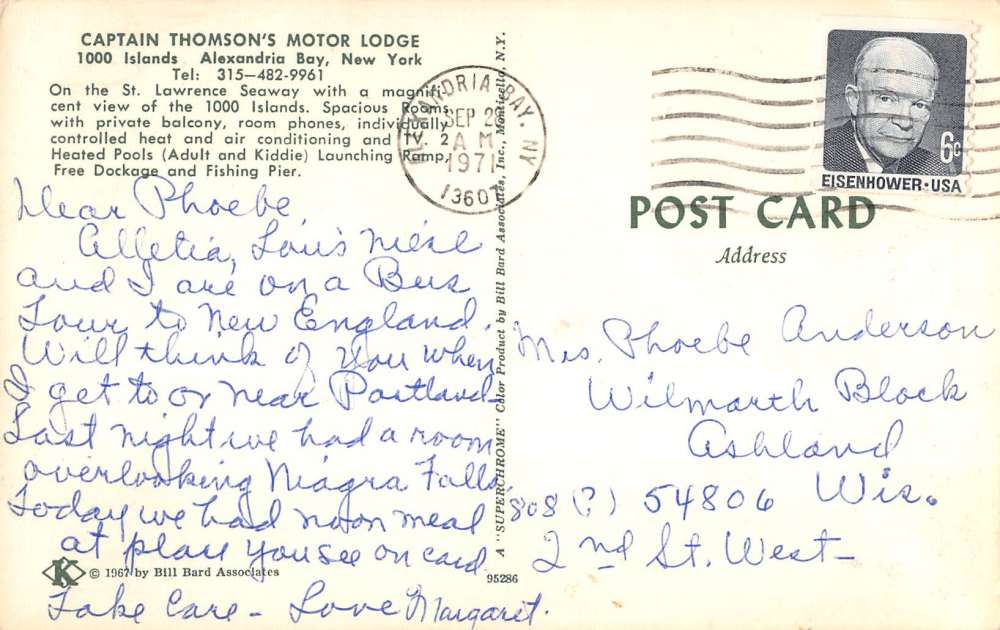 CAPTAIN THOMSON'S MOTOR LODGE
1000 Islands Alexandria Bay, New York
Tel: 315—482-9961
On the St. Lawrence Seaway with a magnifi-
cent view of the 1000 Islands. Spacious Rooms
with private balcony, room phones, individually
controlled heat and air conditioning and TV. 2
Heated Pools (Adult and Kiddie) Launching Ramp,
Free Dockage and Fishing Pier.
Dear Phoebe,
Alletia, Lou's niese
and I are on a Bus
Tour to New England.
Will think of you when
I get to or near Portland-
Last night we had a room
overlooking Niagra Falls.
Today we had noon meal
at place you see on card
Take Care - Love Margaret.
K © 1967 by Bill Bard Associates
95286
A "SUPERCHROME" Color Product by Bill Bard Associates, Inc., Monticello, N.Y.
ALEXANDRIA BAY, NY
SEP 28
AM
1971
13607
6c
EISENHOWER·USA
POST CARD
Address
Mrs. Phoebe Anderson
Wilmarth Block
Ashland
808 (?) 54806 Wis.
2nd St. West-